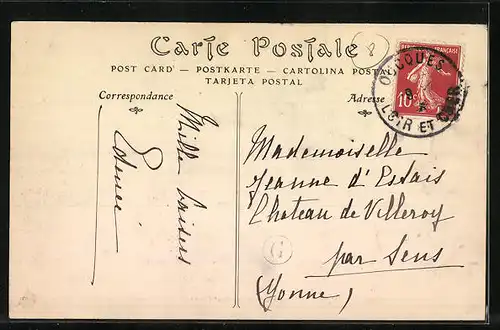 Carte Postale
POST CARD — POSTKARTE — CARTOLINA POSTALE
TARJETA POSTAL
Correspondance
Adresse
8
OUCQUES
LOIR ET CHER
10
Mille baisers
Mademoiselle
Jeanne d'Estais
Chateau de Villeroy
par Sens
(Yonne)
G